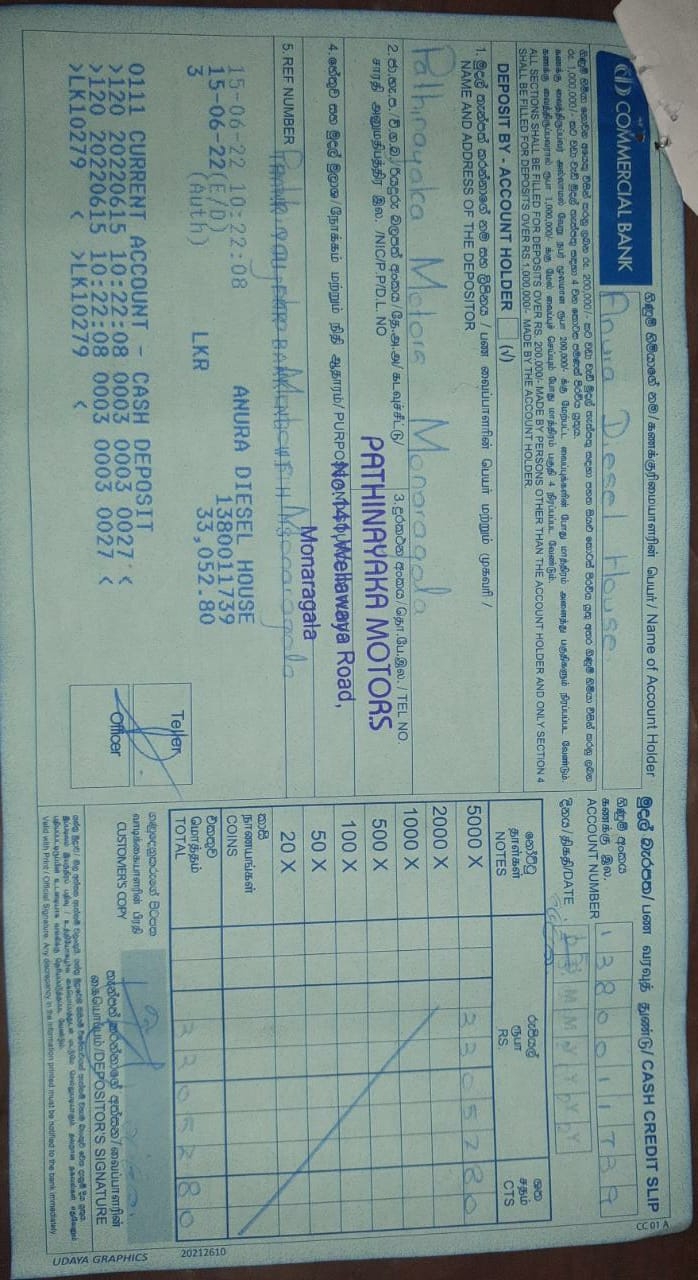 COMMERCIAL BANK
ගිණුම් හිමියාගේ නම/கணக்குரிமையாளரின் பெயர்/ Name of Account Holder
Anura Diesel House
ALL SECTIONS SHALL BE FILLED FOR DEPOSITS OVER RS. 200,000/- MADE BY PERSONS OTHER THAN THE ACCOUNT HOLDER AND ONLY SECTION 4
SHALL BE FILLED FOR DEPOSITS OVER RS 1,000,000/- MADE BY THE ACCOUNT HOLDER.
DEPOSIT BY - ACCOUNT HOLDER (√)
1. මුදල් තැන්පත් කරන්නාගේ නම සහ ලිපිනය / பண வைப்பாளரின் பெயர் மற்றும் முகவரி /
NAME AND ADDRESS OF THE DEPOSITOR
Pathinayaka Motors Monaragala
සාරථි අනුමතිපත්‍ර இல. /NIC/P.P/D.L. NO
3. දුරකථන අංකය/தொ.பே.இல. / TEL NO.
PATHINAYAKA MOTORS
No.141, Wellawaya Road,
Monaragala
5. REF NUMBER
15-06-22 10:22:08 ANURA DIESEL HOUSE
15-06-22(E/D) 1380011739
3 (Auth) LKR 33,052.80
0111 CURRENT ACCOUNT - CASH DEPOSIT
>120 20220615 10:22:08 0003 0003 0027 <
>120 20220615 10:22:08 0003 0003 0027 <
>LK10279 < >LK10279 <
Teller
Officer
මුදල් බැරපත/பண வரவுத் துண்டு/ CASH CREDIT SLIP
CC 01 A
ගිණුම් අංකය
கணக்கு இல.
ACCOUNT NUMBER 1380011739
දිනය/திகதி/DATE
නෝට්ටු
தாள்கள்
NOTES
රුපියල්
ரூபா
RS.
ශත
சதம்
CTS
5000 X 33052 80
2000 X
1000 X
500 X
100 X
50 X
20 X
කාසි
நாணயங்கள்
COINS
එකතුව
மொத்தம்
TOTAL 33052 80
ගනුදෙනුකරුගේ පිටපත
வாடிக்கையாளரின் பிரதி
CUSTOMER'S COPY
තැන්පත් කරන්නාගේ අත්සන/வைப்பாளரின்
கையொப்பம்/DEPOSITOR'S SIGNATURE
Valid with Print / Official Signature. Any discrepancy in the information printed must be notified to the bank immediately.
UDAYA GRAPHICS 20212610